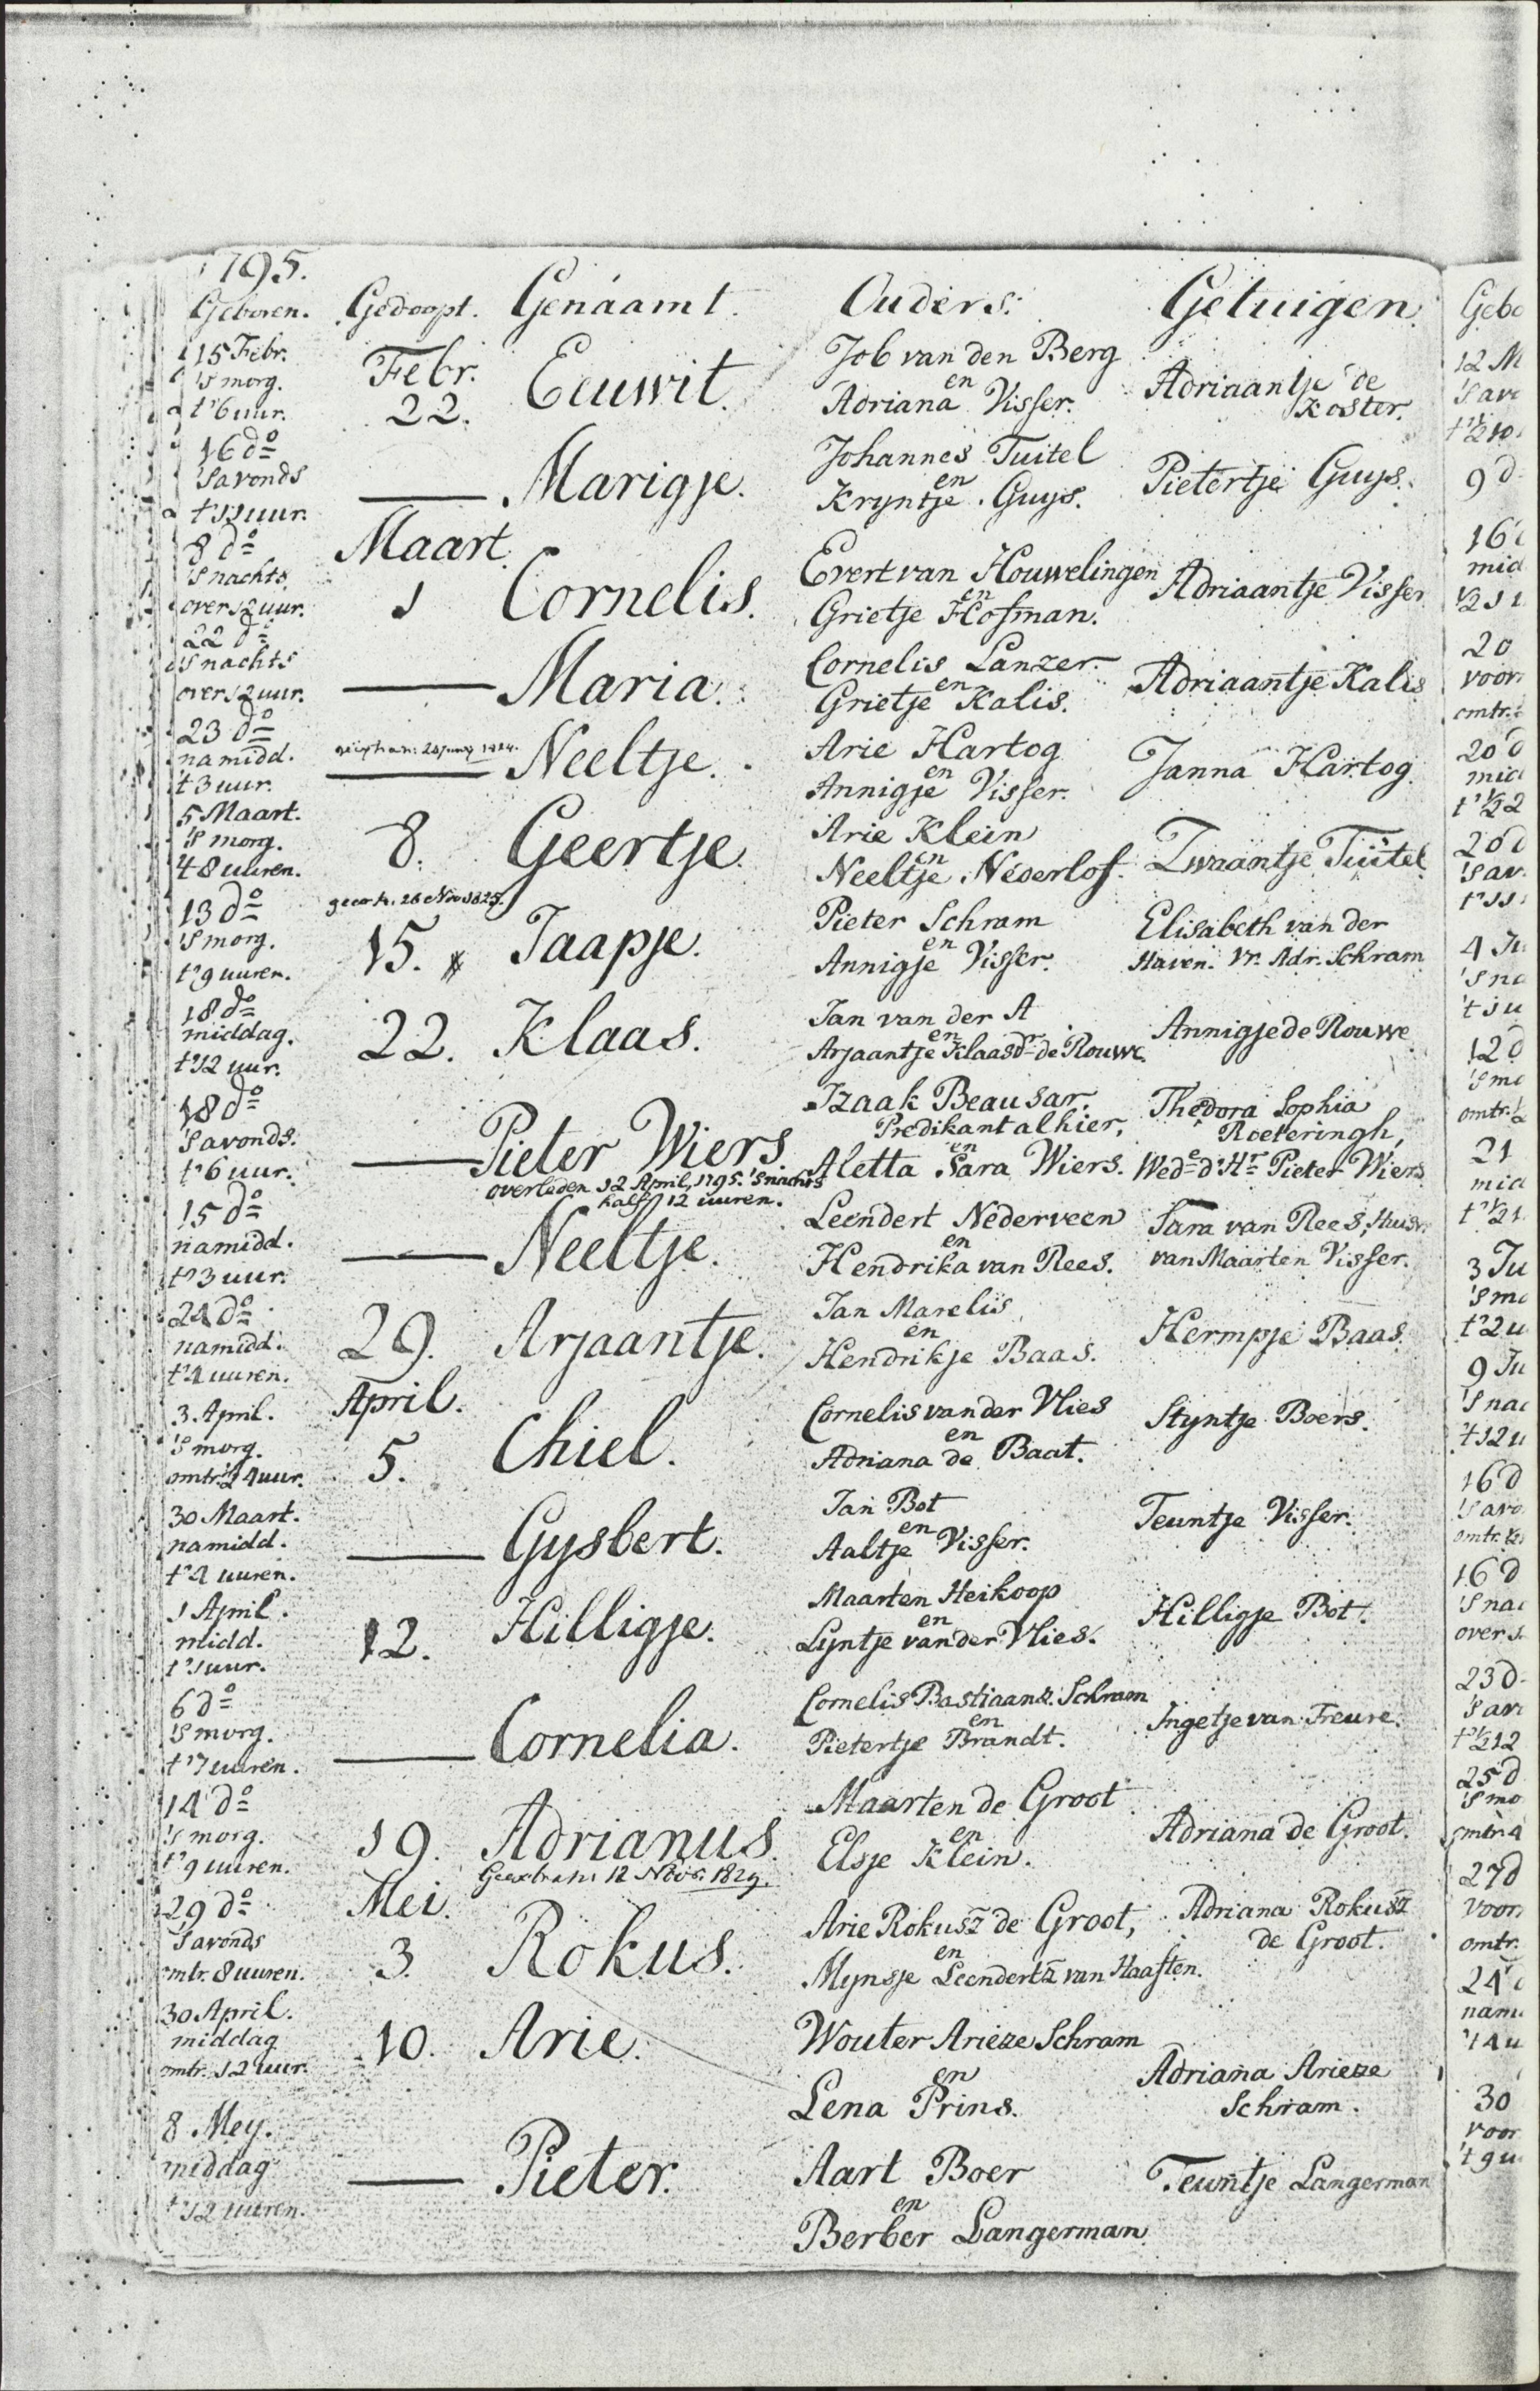 1795.
Geboren. Gedoopt. Genaamt. Ouders: Getuigen.
15 Febr. 's morg. t' 6 uur. Febr. 22. Eeuwit. Job van den Berg en Adriana Visser. Adriaantje de Koster.
16 do 's avonds t' 11 uur. Marigje. Johannes Tuitel en Kryntje Guys. Pietertje Guys.
8 do 's nachts over 12 uur. Maart 1 Cornelis. Evert van Houwelingen en Grietje Hofman. Adriaantje Visser
22 do 's nachts over 12 uur. Maria. Cornelis Lanzer en Grietje Kalis. Adriaantje Kalis
23 do namidd. t 3 uur. Neeltje. Arie Hartog en Annigje Visser. Janna Hartog.
5 Maart. 's morg. 8 uuren. 8. Geertje. Arie Klein en Neeltje Nederlof. Zwaantje Tuitel
13 do 's morg. t' 9 uuren. 15. Jaapje. Pieter Schram en Annigje Visser. Elisabeth van der Haven. Vr. Adr. Schram
18 do middag. t' 12 uur. 22. Klaas. Jan van der A en Arjaantje Klaasdr de Rouwe. Annigje de Rouwe
18 do 's avonds. t' 6 uur. Pieter Wiers. overleden 12 April, 1795. 's nachts half 12 uuren. Izaak Beausar. Predikant alhier, en Aletta Sara Wiers. Thedora Sophia Roeteringh, Wede dHr Pieter Wiers
15 do namidd. t' 3 uur. Neeltje. Leendert Nederveen en Hendrika van Rees. Sara van Rees, Huisv. van Maarten Visser.
24 do namidd. t' 4 uuren. 29. Arjaantje. Jan Marelis en Hendrikje Baas. Hermpje Baas.
3 April. 's morg. omtr. ½ 4 uur. April. 5. Chiel. Cornelis van der Vlies en Adriana de Baat. Styntje Boers.
30 Maart. namidd. t' 4 uuren. Gysbert. Jan Bot en Aaltje Visser. Teuntje Visser.
1 April. midd. t' 1 uur. 12. Hilligje. Maarten Heikoop en Lyntje van der Vlies. Hilligje Bot.
6 do 's morg. t' 7 uuren. Cornelia. Cornelis Bastiaansz. Schram en Pietertje Brandt. Ingetje van Treure.
14 do 's morg. t' 9 uuren. 19. Adrianus. 12 Nov. 1829. Maarten de Groot en Elsje Klein. Adriana de Groot.
29 do 's avonds omtr. 8 uuren. Mei. 3. Rokus. Arie Rokusz de Groot, en Mynsje Leenderts van Haaften. Adriana Rokusz de Groot.
30 April. middag omtr. 12 uur. 10. Arie. Wouter Arieze Schram en Lena Prins. Adriana Arieze Schram.
8 Mey. middag t' 12 uuren. Pieter. Aart Boer en Berber Langerman. Teuntje Langerman